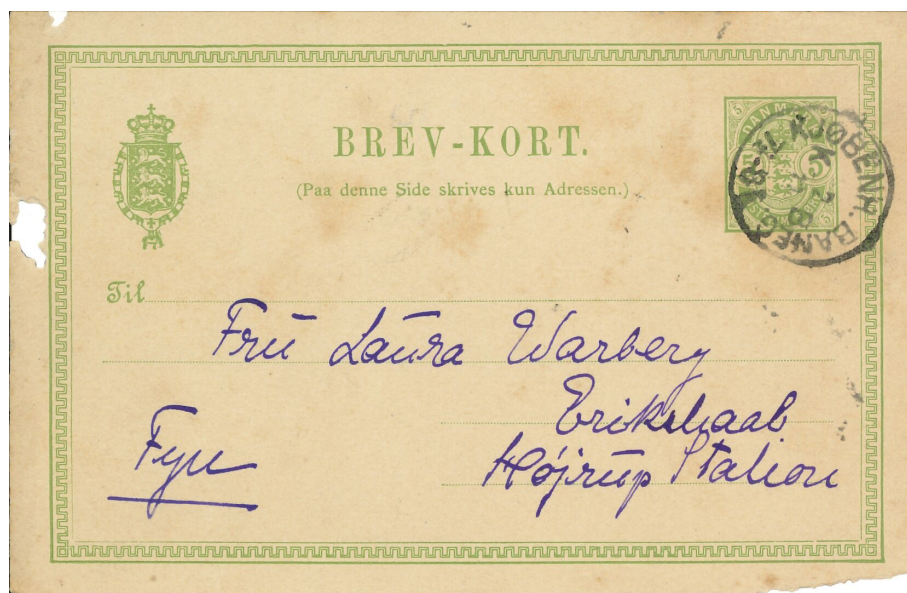 BREV-KORT.
(Paa denne Side skrives kun Adressen.)
DANMARK
5
5
5
KJØBENH.
BANEG.
Til
Fru Laura Warberg
Erikshaab
Højrup Station
Fyn